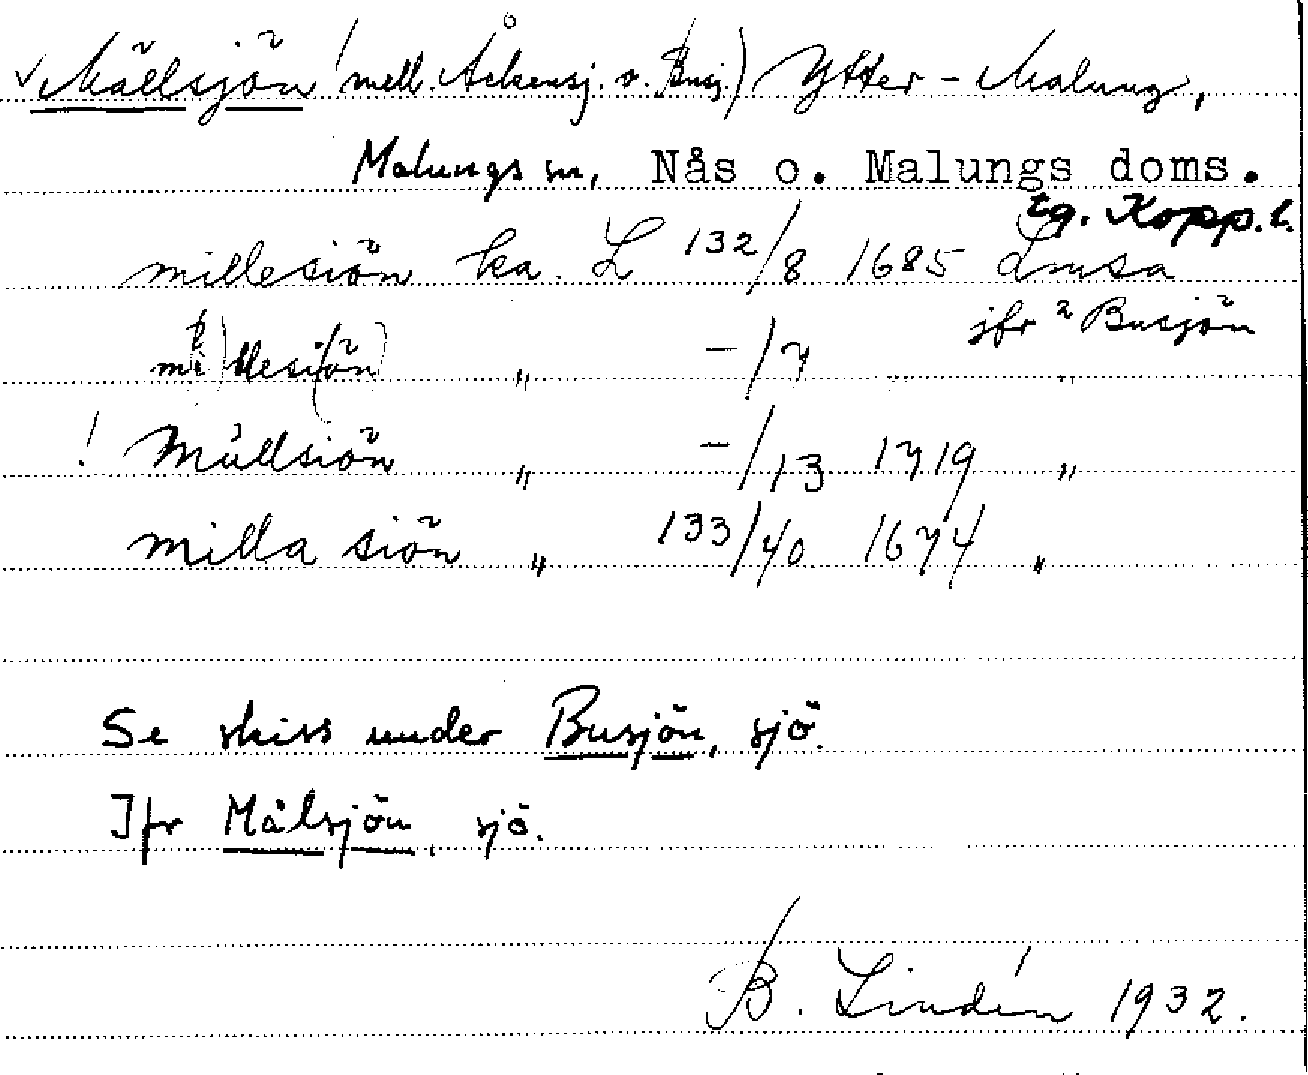 Mällsjön (mell. Åckensj. o. Busj.) Ytter-Malung,
Malungs sn, Nås o. Malungs doms.
tg. Kopp. l.
millesiön ka. L 132/8 1685 Lmsa
jfr Busjön
-/7 "
! Múllsiön " -/13 1719 "
milla siön " 133/40 1674 "
Se skiss under Busjön, sjö.
Jfr Målsjön, sjö.
B. Lindén 1932.